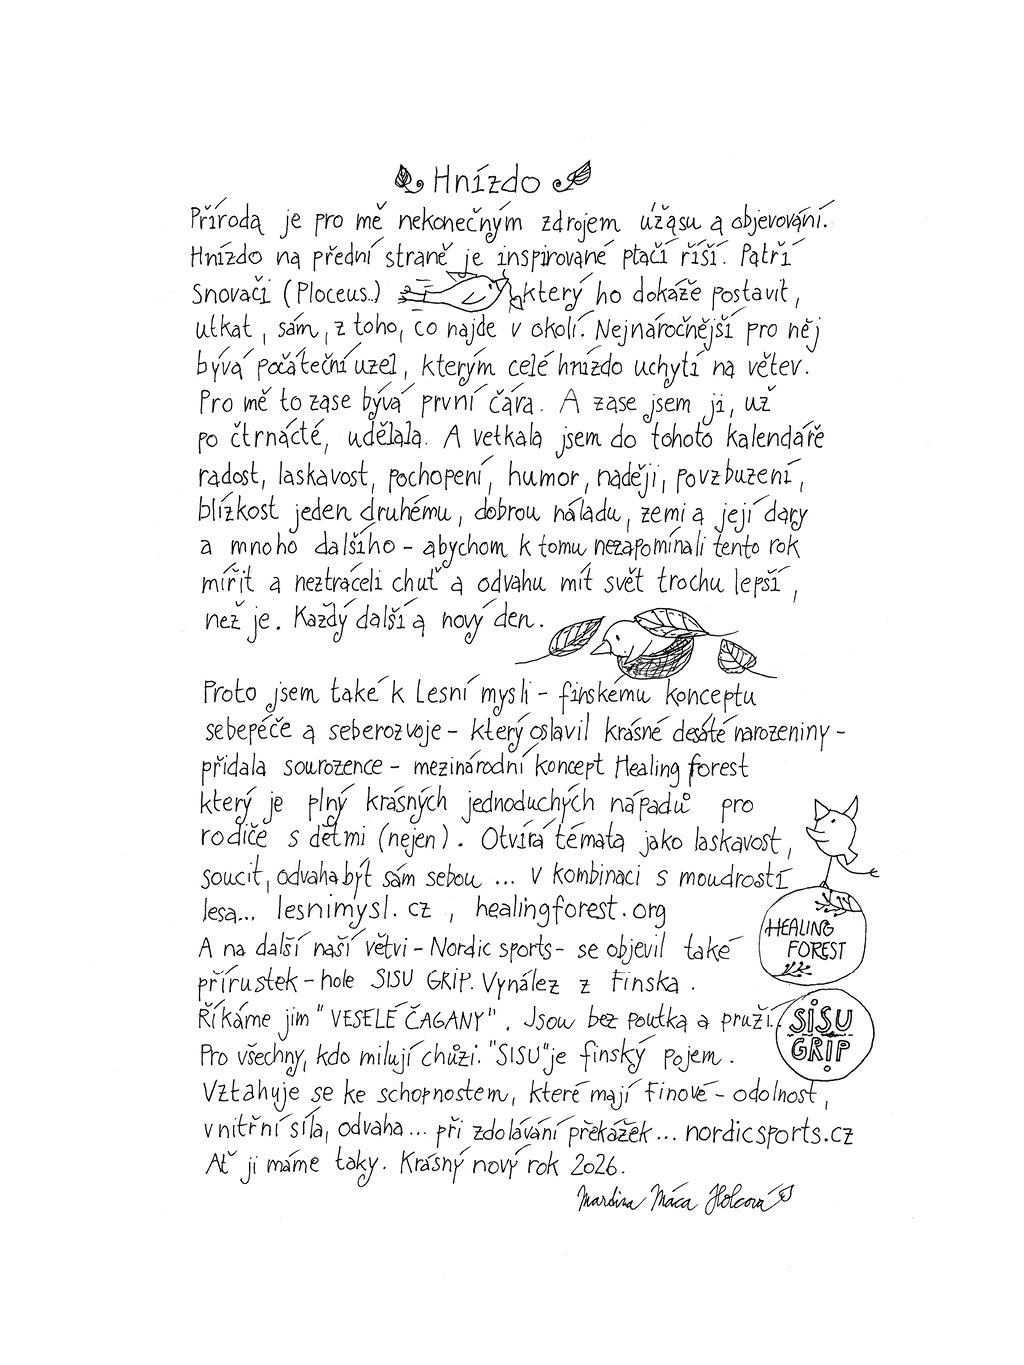 Hnízdo
Příroda je pro mě nekonečným zdrojem úžasu a objevování.
Hnízdo na přední straně je inspirované ptačí říší. Patří
Snovači (Ploceus..) který ho dokáže postavit,
utkat, sám, z toho, co najde v okolí. Nejnáročnější pro něj
bývá počáteční uzel, kterým celé hnízdo uchytí na větev.
Pro mě to zase bývá první čára. A zase jsem ji, už
po čtrnácté, udělala. A vetkala jsem do tohoto kalendáře
radost, laskavost, pochopení, humor, naději, povzbuzení,
blízkost jeden druhému, dobrou náladu, zemi a její dary
a mnoho dalšího - abychom k tomu nezapomínali tento rok
mířit a neztráceli chuť a odvahu mít svět trochu lepší,
než je. Každý další a nový den.
Proto jsem také k Lesní mysli - finskému konceptu
sebepéče a seberozvoje - který oslavil krásné desáté narozeniny -
přidala sourozence - mezinárodní koncept Healing forest
který je plný krásných jednoduchých nápadů pro
rodiče s dětmi (nejen). Otvírá témata jako laskavost,
soucit, odvaha být sám sebou ... v kombinaci s moudrostí
lesa... lesnimysl.cz , healingforest.org
HEALING
FOREST
A na další naší větvi - Nordic sports - se objevil také
přírustek - hole SISU GRIP. Vynález z Finska.
Říkáme jim "VESELÉ ČAGANY". Jsou bez poutka a pruží.
SISU
GRIP
Pro všechny, kdo milují chůzi. "SISU" je finský pojem.
Vztahuje se ke schopnostem, které mají Finové - odolnost,
vnitřní síla, odvaha... při zdolávání překážek... nordicsports.cz
Ať ji máme taky. Krásný nový rok 2026.
Martina Máca Holcová